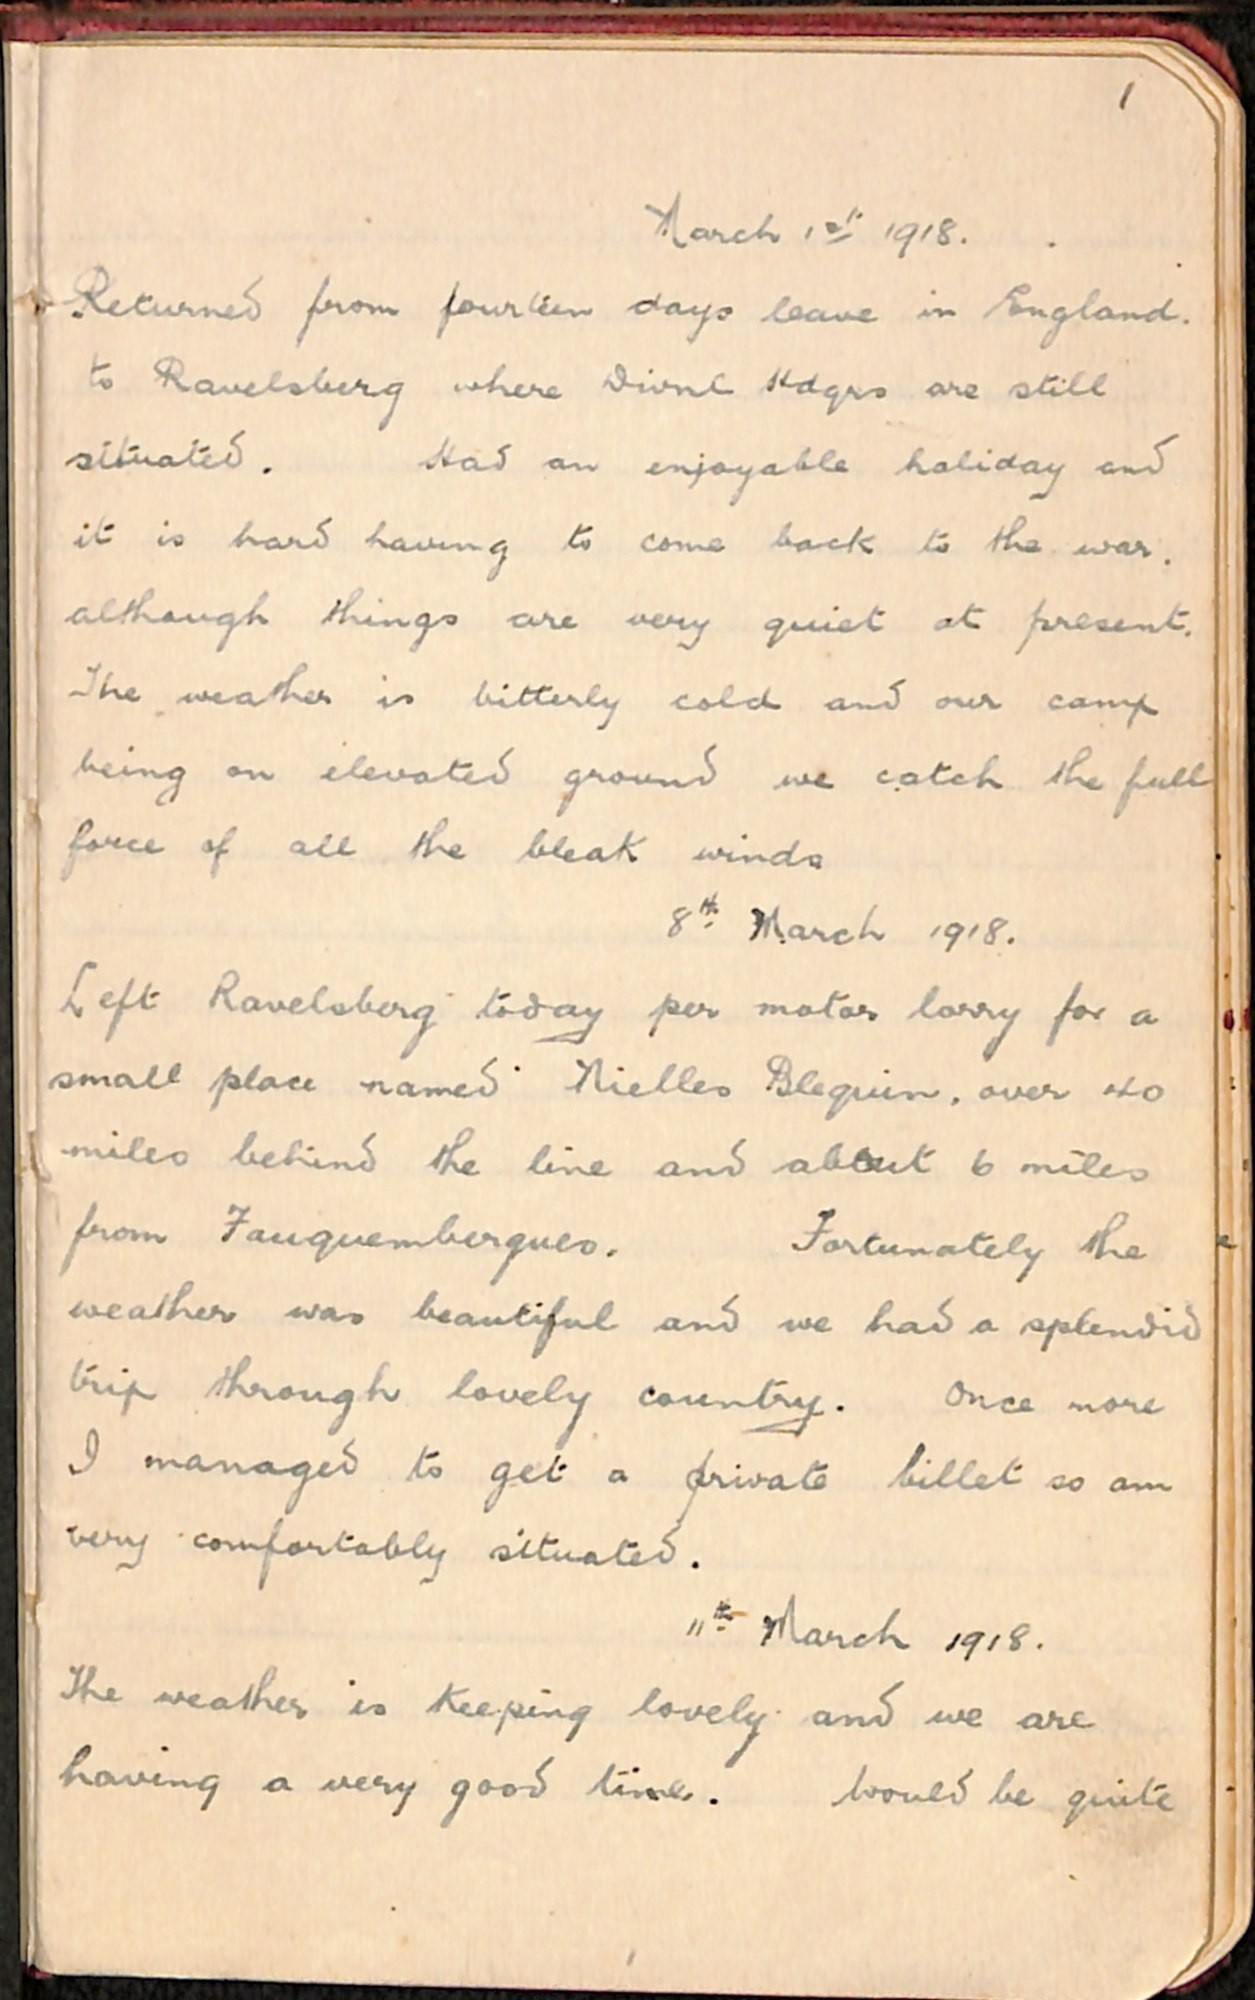 1
March 1st 1918.
Returned from fourteen days leave in England.
to Ravelsberg where Divnl Hdqrs are still
situated. Had an enjoyable holiday and
it is hard having to come back to the war.
although things are very quiet at present.
The weather is bitterly cold and our camp
being on elevated ground we catch the full
force of all the bleak winds
8th March 1918.
Left Ravelsberg today per motor lorry for a
small place named Nielles Blequin, over 40
miles behind the line and about 6 miles
from Fauquembergues. Fortunately the
weather was beautiful and we had a splendid
trip through lovely country. Once more
I managed to get a private billet so am
very comfortably situated.
11th March 1918.
The weather is keeping lovely and we are
having a very good time. Would be quite